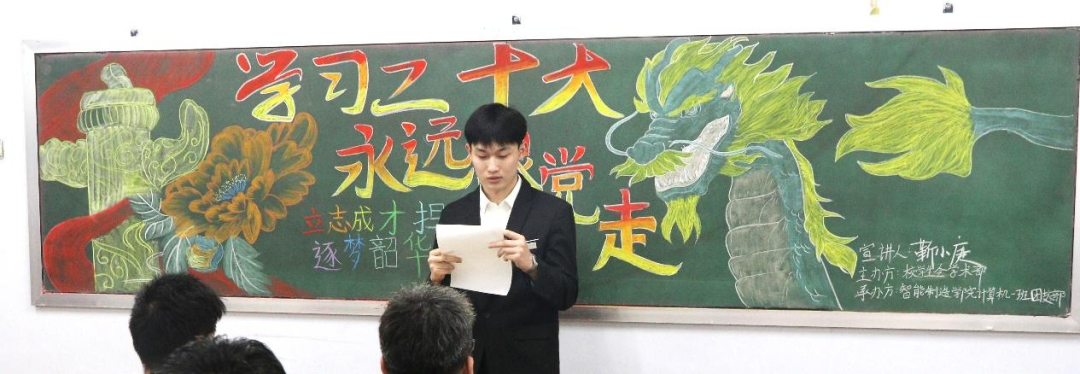 学习二十大
永远 党走
立志成才
逐梦韶华
宣讲人:靳小庭
主办方:校社会学术部
承办方:智能制造学院计算机一班团支部